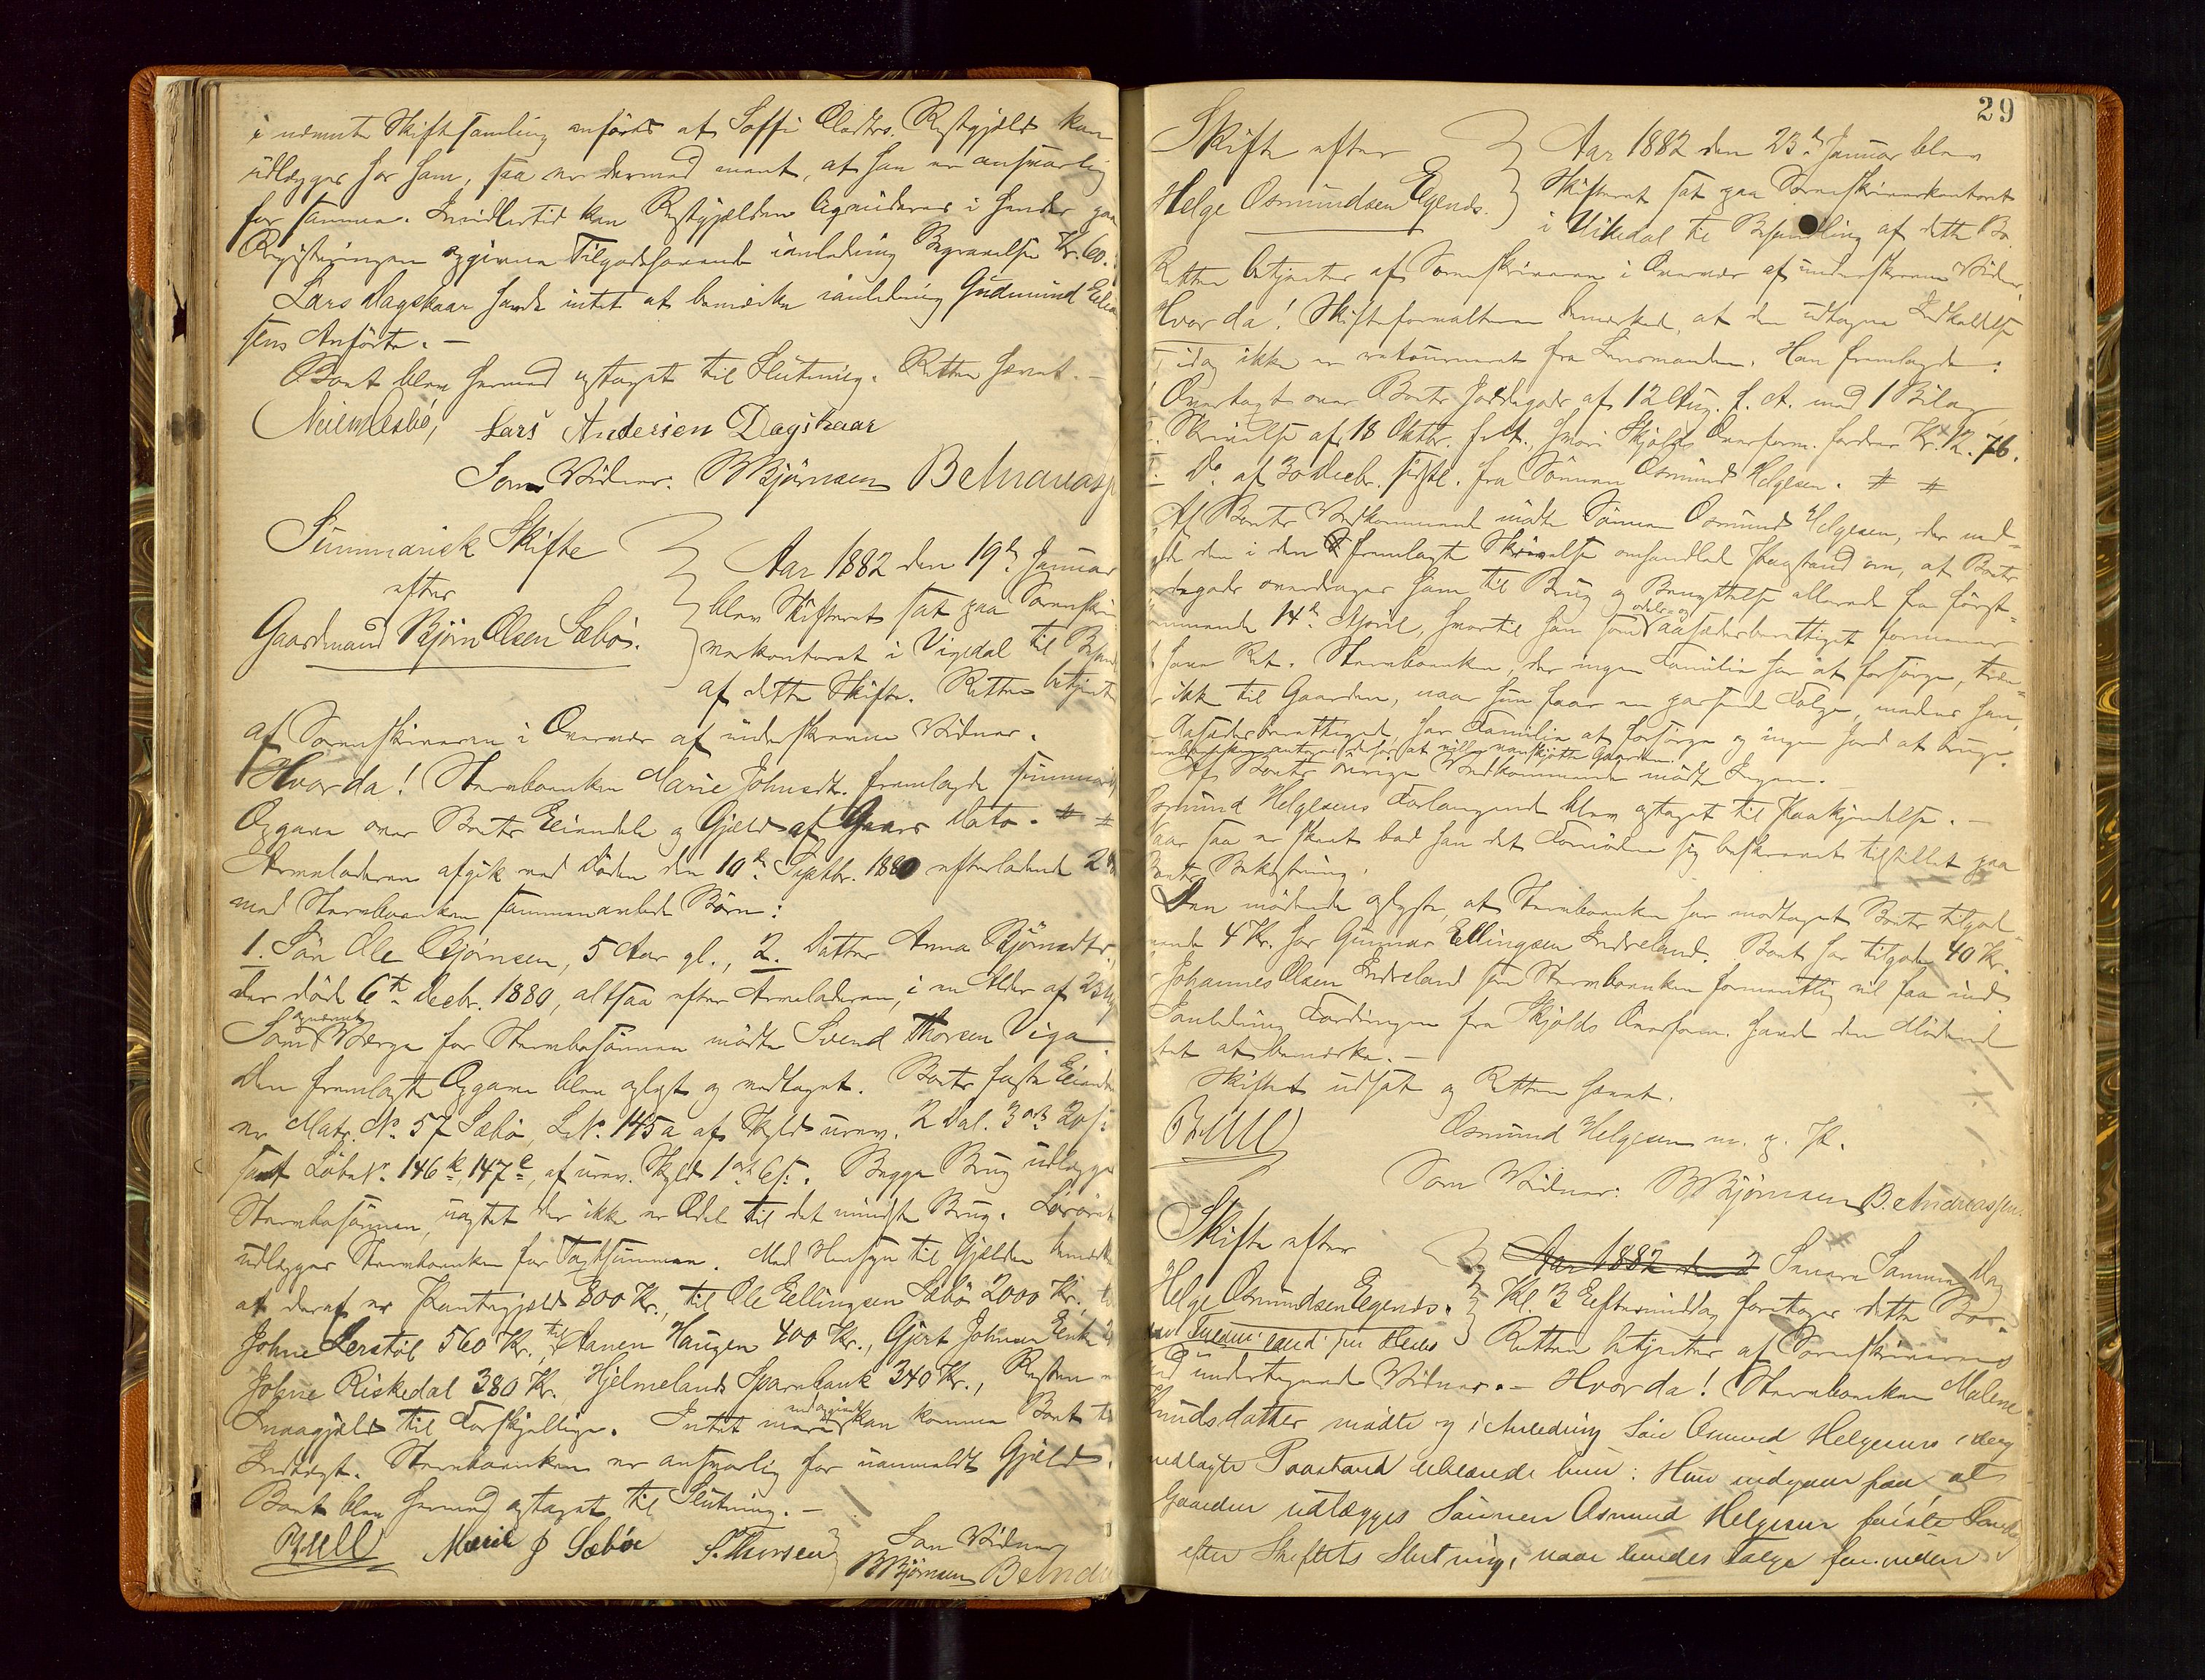 i nævnte Skiftesamling anførte at Soffi Olsdtrs. Restgjæld kan
udlægges for ham, saa er dermed ment, at han er ansvarlig
for samme. Imidlertid kan Restgjælden i gaa
Registeringen opgivne Tilgodehavende ianledning Begravelse Kr. 60.
Lars Dagskaar havde intet at bemærke ianledning Gudmund
sens Anførte. —
Boet blev hermed optaget til Slutning. Retten hævet. —
Lars Andersen Dagskaar
Som Vidner. BBjørnsen B Andreass
Summarisk Skifte
efter
Gaardmand Bjørn Olsen Sæbø.
Aar 1882 den 19de Januar
blev Skifteret sat paa Sorenskri
verkontoret i Vigedal til Behand
af dette Skifte. Retten betjent
af Sorenskriveren i Overvær af underskrevne Vidner.
Hvor da! Stervboenken Marie Johnsdt. fremlagde summarisk
Opgave over Boets Eiendele og Gjæld af Gaars Dato. # #
Arveladeren afgik ved Døden den 10de Septbr. 1880 efterladende 2de
med Stervboenken sammenavlede Børn:
1. Søn Ole Bjørnsen, 5 Aar gl., 2. Datter Anna Bjørnsdtr.
der døde 6te Decbr. 1880, altsaa efter Arveladeren, i en Alder af 23
Som opnævnt Værge for Stervbosønnen mødte Svend Thorsen Viga.
Den fremlagte Opgave blev oplæst og vedtaget. Boets faste Eiend
er Matr. No. 57 Sæbø, L.No. 145a af Skyld urev. 2 Dal. 3 ort 20 s.
samt Løbe No. 146k, 147e, af urev. Skyld 1 ort 6 s. Begge Brug udlægges
Stervbosønnen, uagtet der ikke er Odel til det mindste Brug. Løsøret
udlægges Stervboenken for Taxtsummen. Med Hensyn til Gjælden bemærkes
at deraf er Pantegjæld 800 Kr., til Ole Ellingsen Sæbø 2000 Kr., til
Johne Lerstøl 560 Kr., til Aanen Haugen 400 Kr., Gjert Johnsen
Johne Riskedal 380 Kr., Hjelmelands Sparebank 340 Kr., Resten er
Smaagjæld til Forskjellige. Intet mere kan komme Boet til
Indtægt. Stervboenken er ansvarlig for uanmeldt Gjæld.
Boet blev hermed optaget til Slutning. —
Marie J Sæbøe S. Thorsen Som Vidner
BBjørnsen B Andr
29
Skifte efter
Helge Osmundsen Egends.
Aar 1882 den 23de Januar blev
Skifteret sat paa Sorenskriverkontoret
i Vikedal til Behandling af dette Bo.
Retten betjentes af Sorenskriveren i Overvær af underskrevne Vidner,
Hvor da! Skifteforvalteren bemærkede, at den udtagne Indkaldelse
idag ikke er retourneret fra Lensmanden. Han fremlagde:
Overtaxt over Boets Jordegods af 12 Aug. f. A. med 1 Bilag
Skrivelse af 18 Oktbr. f. A. hvori Skjolds Overform. fordrer Kr. 12.76.
Do. af 30 Decbr. sidstl. fra Sønnen Osmund Helgesen. # #
Af Boets Vedkommende mødte Sønnen Osmund Helgesen, der ned-
lagde den i den fremlagte Skrivelse omhandlede Paastand om, at Boets
Jordegods overdrages ham til Brug og Benyttelse allerede fra først-
kommende 14de April, hvortil han som odels og aasædesberettiget formener
at have Ret. Stervboenken, der ingen Familie har at forsørge, træn-
ger ikke til Gaarden, naar hun faar en passende Følge, mens han,
Aasædesberettiget, har Familie at forsørge og ingen Jord at bruge.
Stervboenken antages desuden at ville vanskjøtte Gaarden.
Af Boets øvrige Vedkommende mødte Ingen. —
Osmund Helgesens Forlangende blev optaget til Paakjendelse. —
Naar saa er skeet bad han det Fornødne sig beskrevet tilstillet paa
Boets Bekostning.
Den mødende oplyste, at Stervboenken har modtaget Boets tilgode-
havende 4 Kr. hos Gunnar Ellingsen Indreland. Boet har tilgode 40 Kr.
Johannes Olsen Indreland som Stervboenken formentlig vil faa ind
Ianledning Fordringen fra Skjolds Overform. havde den Mødende
intet at bemærke. —
Skiftet udsat og Retten hævet.
Osmund Helgesen m. p. P.
Som Vidner: BBjørnsen B. Andreassen.
Skifte efter
Helge Osmundsen Egends.
Aar 1882 den 2 Senere Samme Dag
Kl. 3 Eeftermiddag foretoges dette Bo.
Retten betjentes af Sorenskriveren
med undertegnede Vidner. — Hvor da! Stervboenken Malene
Knudsdatter mødte og i Anledning Søn Osmund Helgesens idag
nedlagte Paastand erklærede hun: Hun indgaar paa, at
Gaarden udlægges Sønnen Osmund Helgesen første
efter Skiftets Slutning, naar hendes Følge